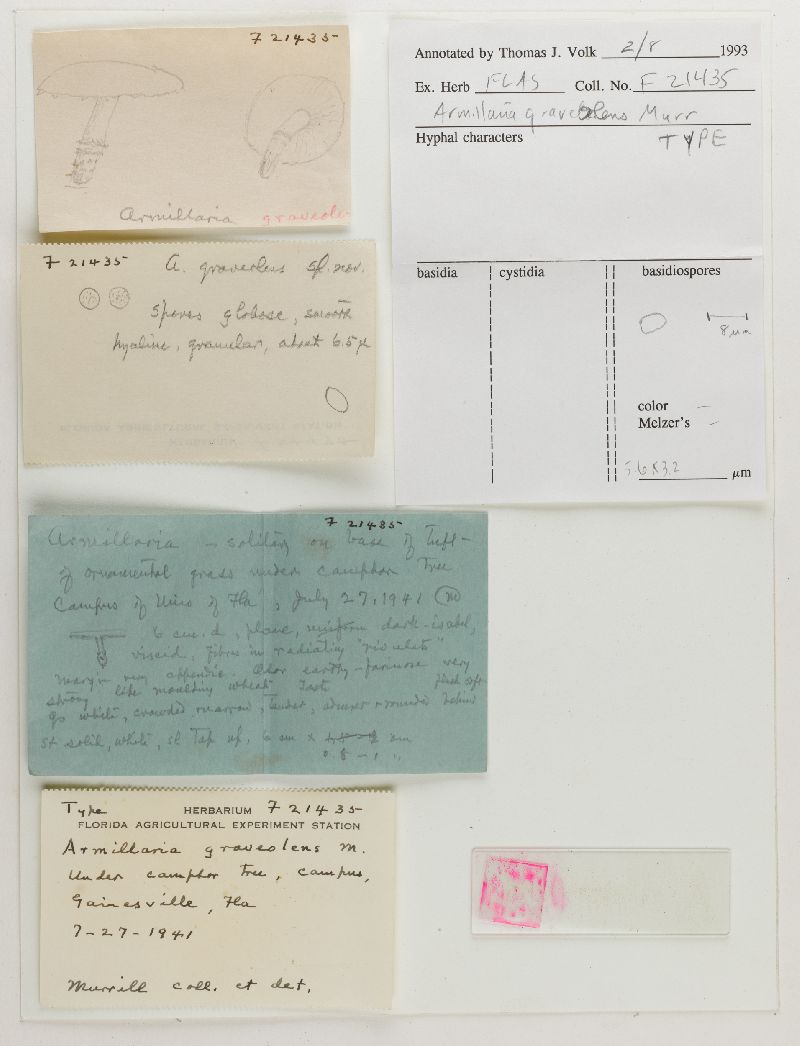 F 21435
Armillaria graveole
F 21435
A. graveolens sp. nov.
Spores globose, smooth
hyaline, granular, about 6.5 µ
F 21435
Armillaria — solitary on base of tuft
of ornamental grass under camphor tree
Campus of Univ of Fla, July 27, 1941 M
6 cm. d, plane, uniform dark-isabel,
viscid, fibres in radiating "rivulets"
margin very appendic. Odor earthy-farinose very
strong like moulding wheat Taste
flesh soft
gs white, crowded, narrow, tender, adnexed + rounded behind
St solid, white, sl tap up, 6 cm x
0.8 - 1 "
Type HERBARIUM F 21435
FLORIDA AGRICULTURAL EXPERIMENT STATION
Armillaria graveolens M.
Under camphor tree, campus,
Gainesville, Fla
7-27-1941
Murrill coll. et det.
Annotated by Thomas J. Volk 2/8 1993
Ex. Herb FLAS Coll. No. F 21435
Armillaria graveolens Murr
Hyphal characters TYPE
basidia cystidia basidiospores
8 µm
color –
Melzer's –
5.6 x 3.2 µm